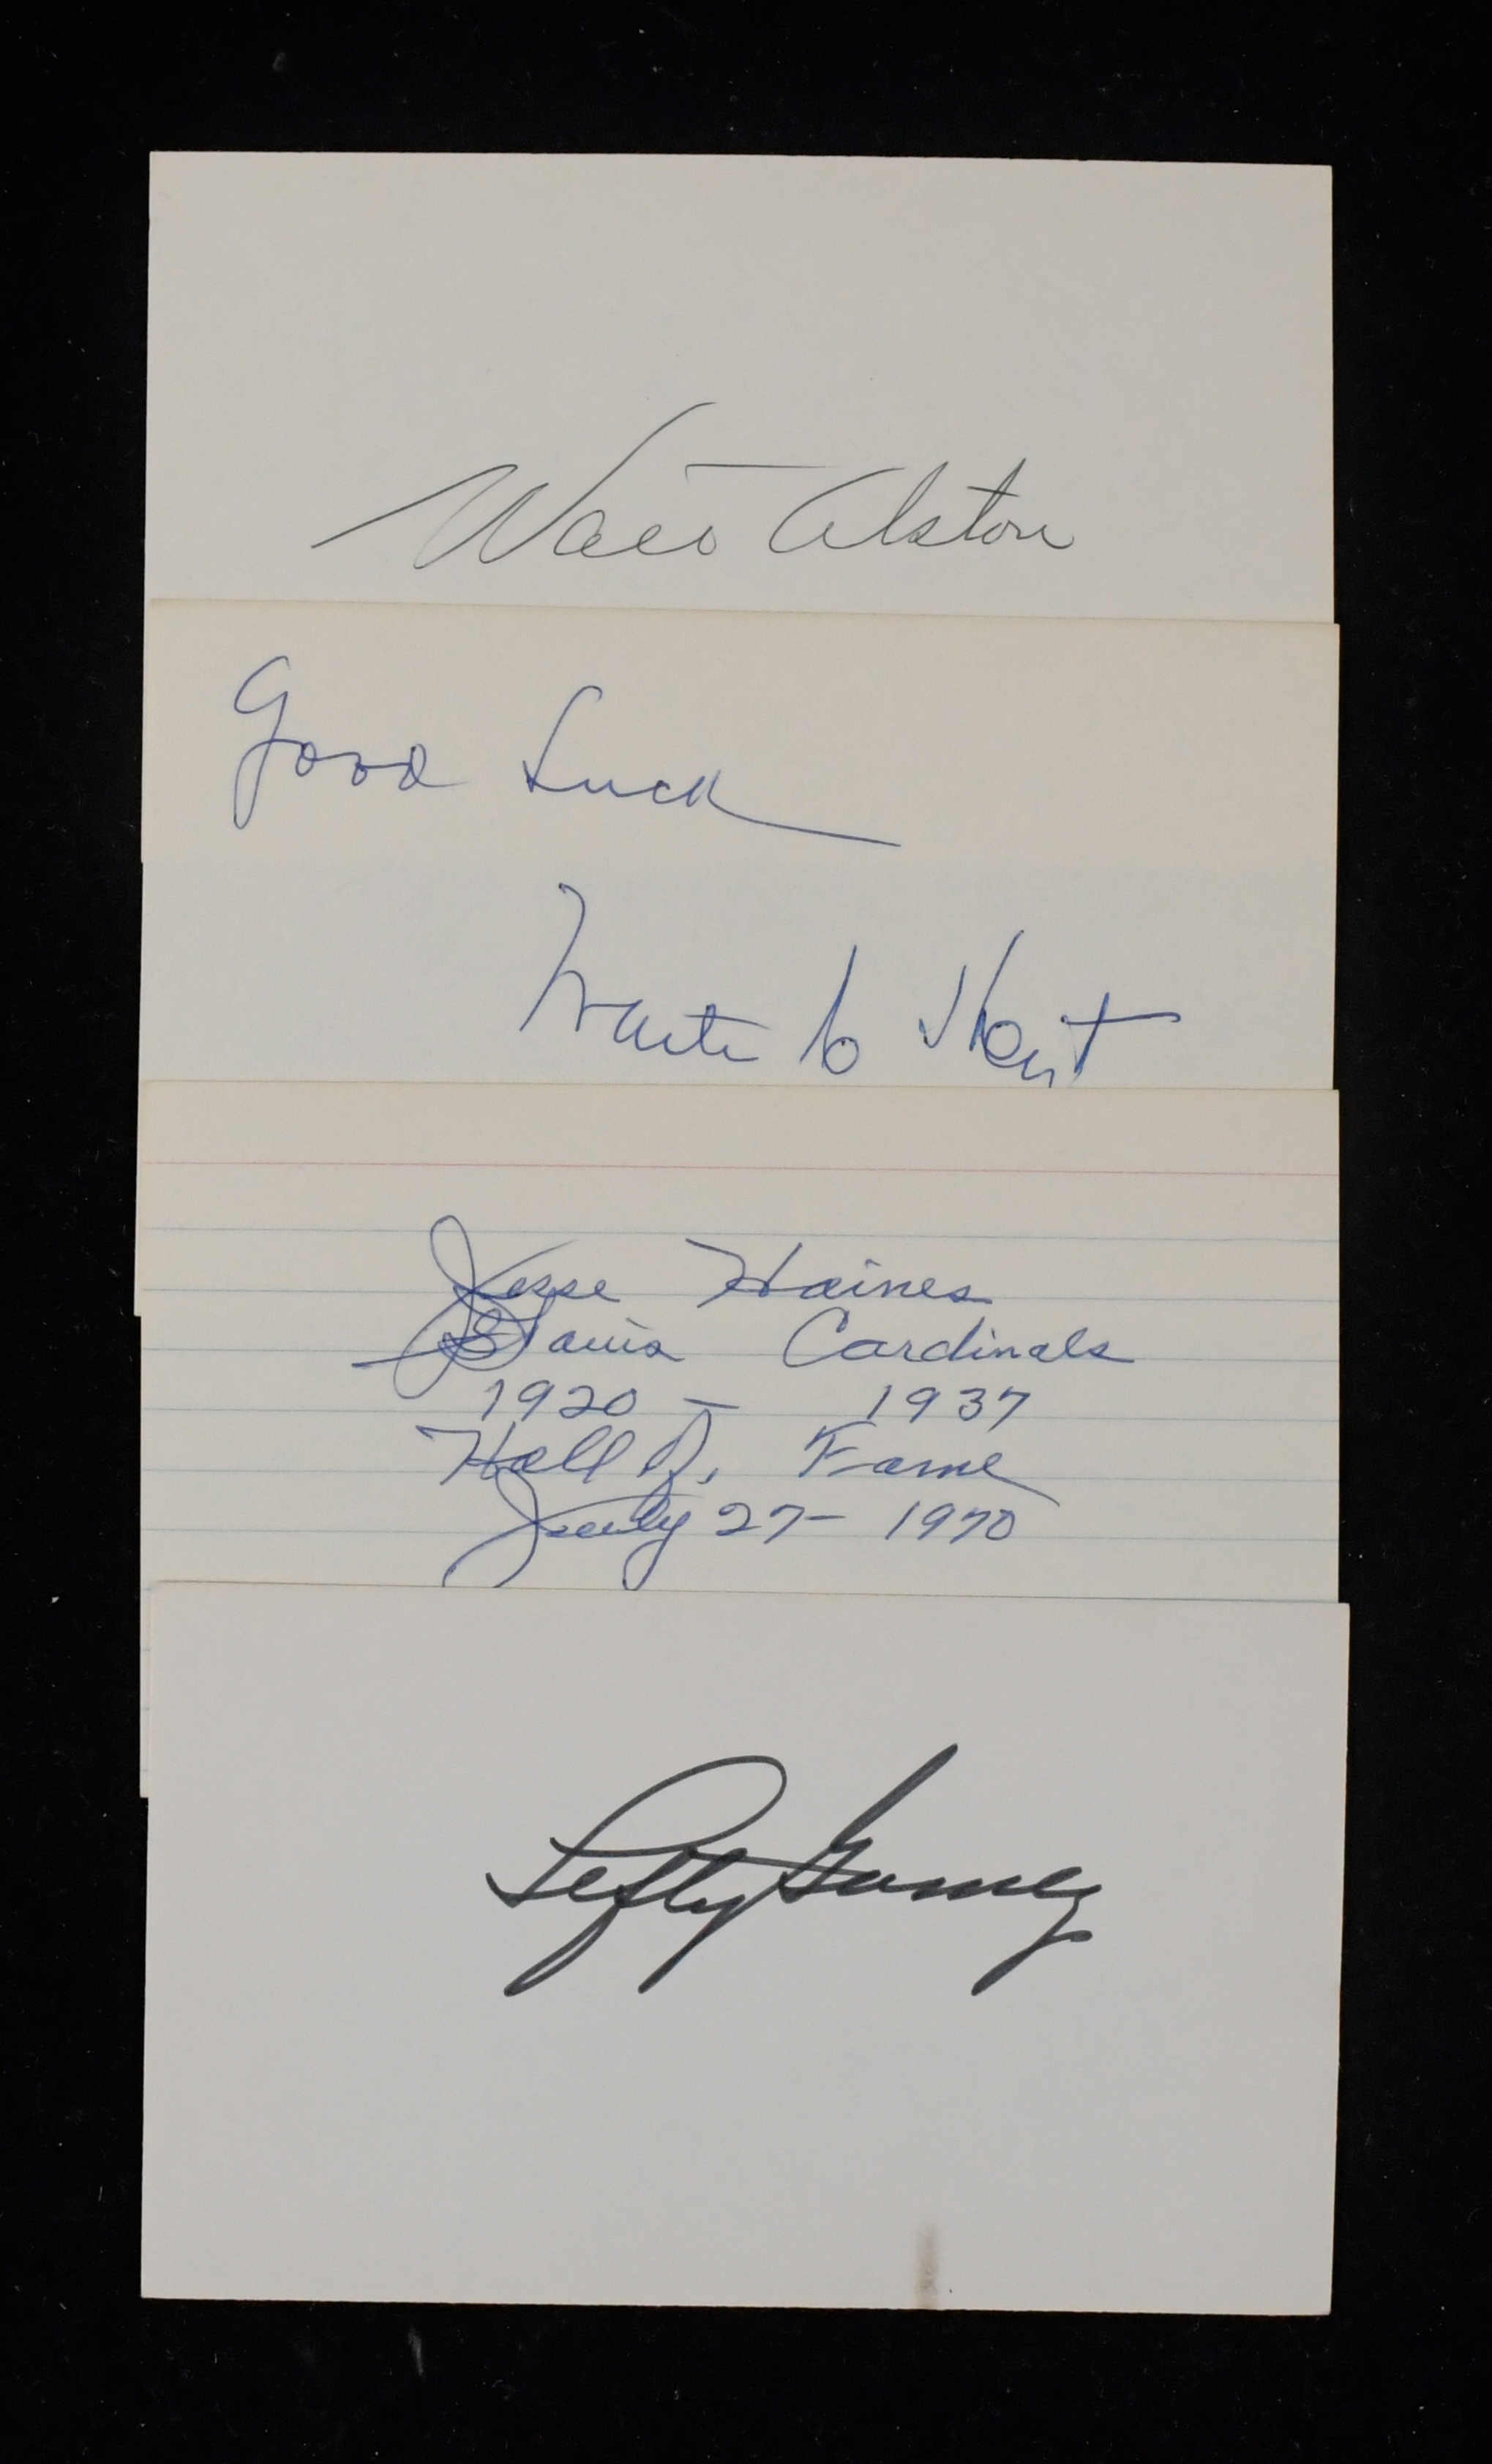 Walt Alston
Good Luck
Waite C Hoyt
Jesse Haines
St Louis Cardinals
1920 - 1937
Hall of Fame
July 27 - 1970
Lefty Gomez